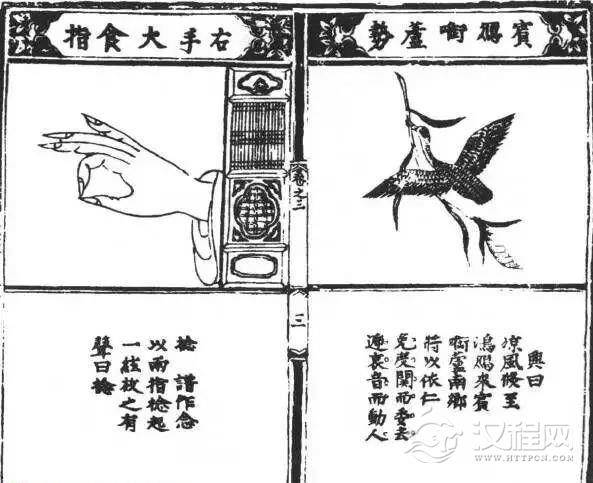 賓鴈啣蘆勢
興曰
涼風倐至
鴻鴈來賓
啣蘆南鄉
將以依仁
免度關而委去
遞哀音而動人
卷之二
三
右手大食指
捻 譜作念
以兩指捻起
一絃放之有
聲曰捻
汉程网
WWW.HTTPCN.COM